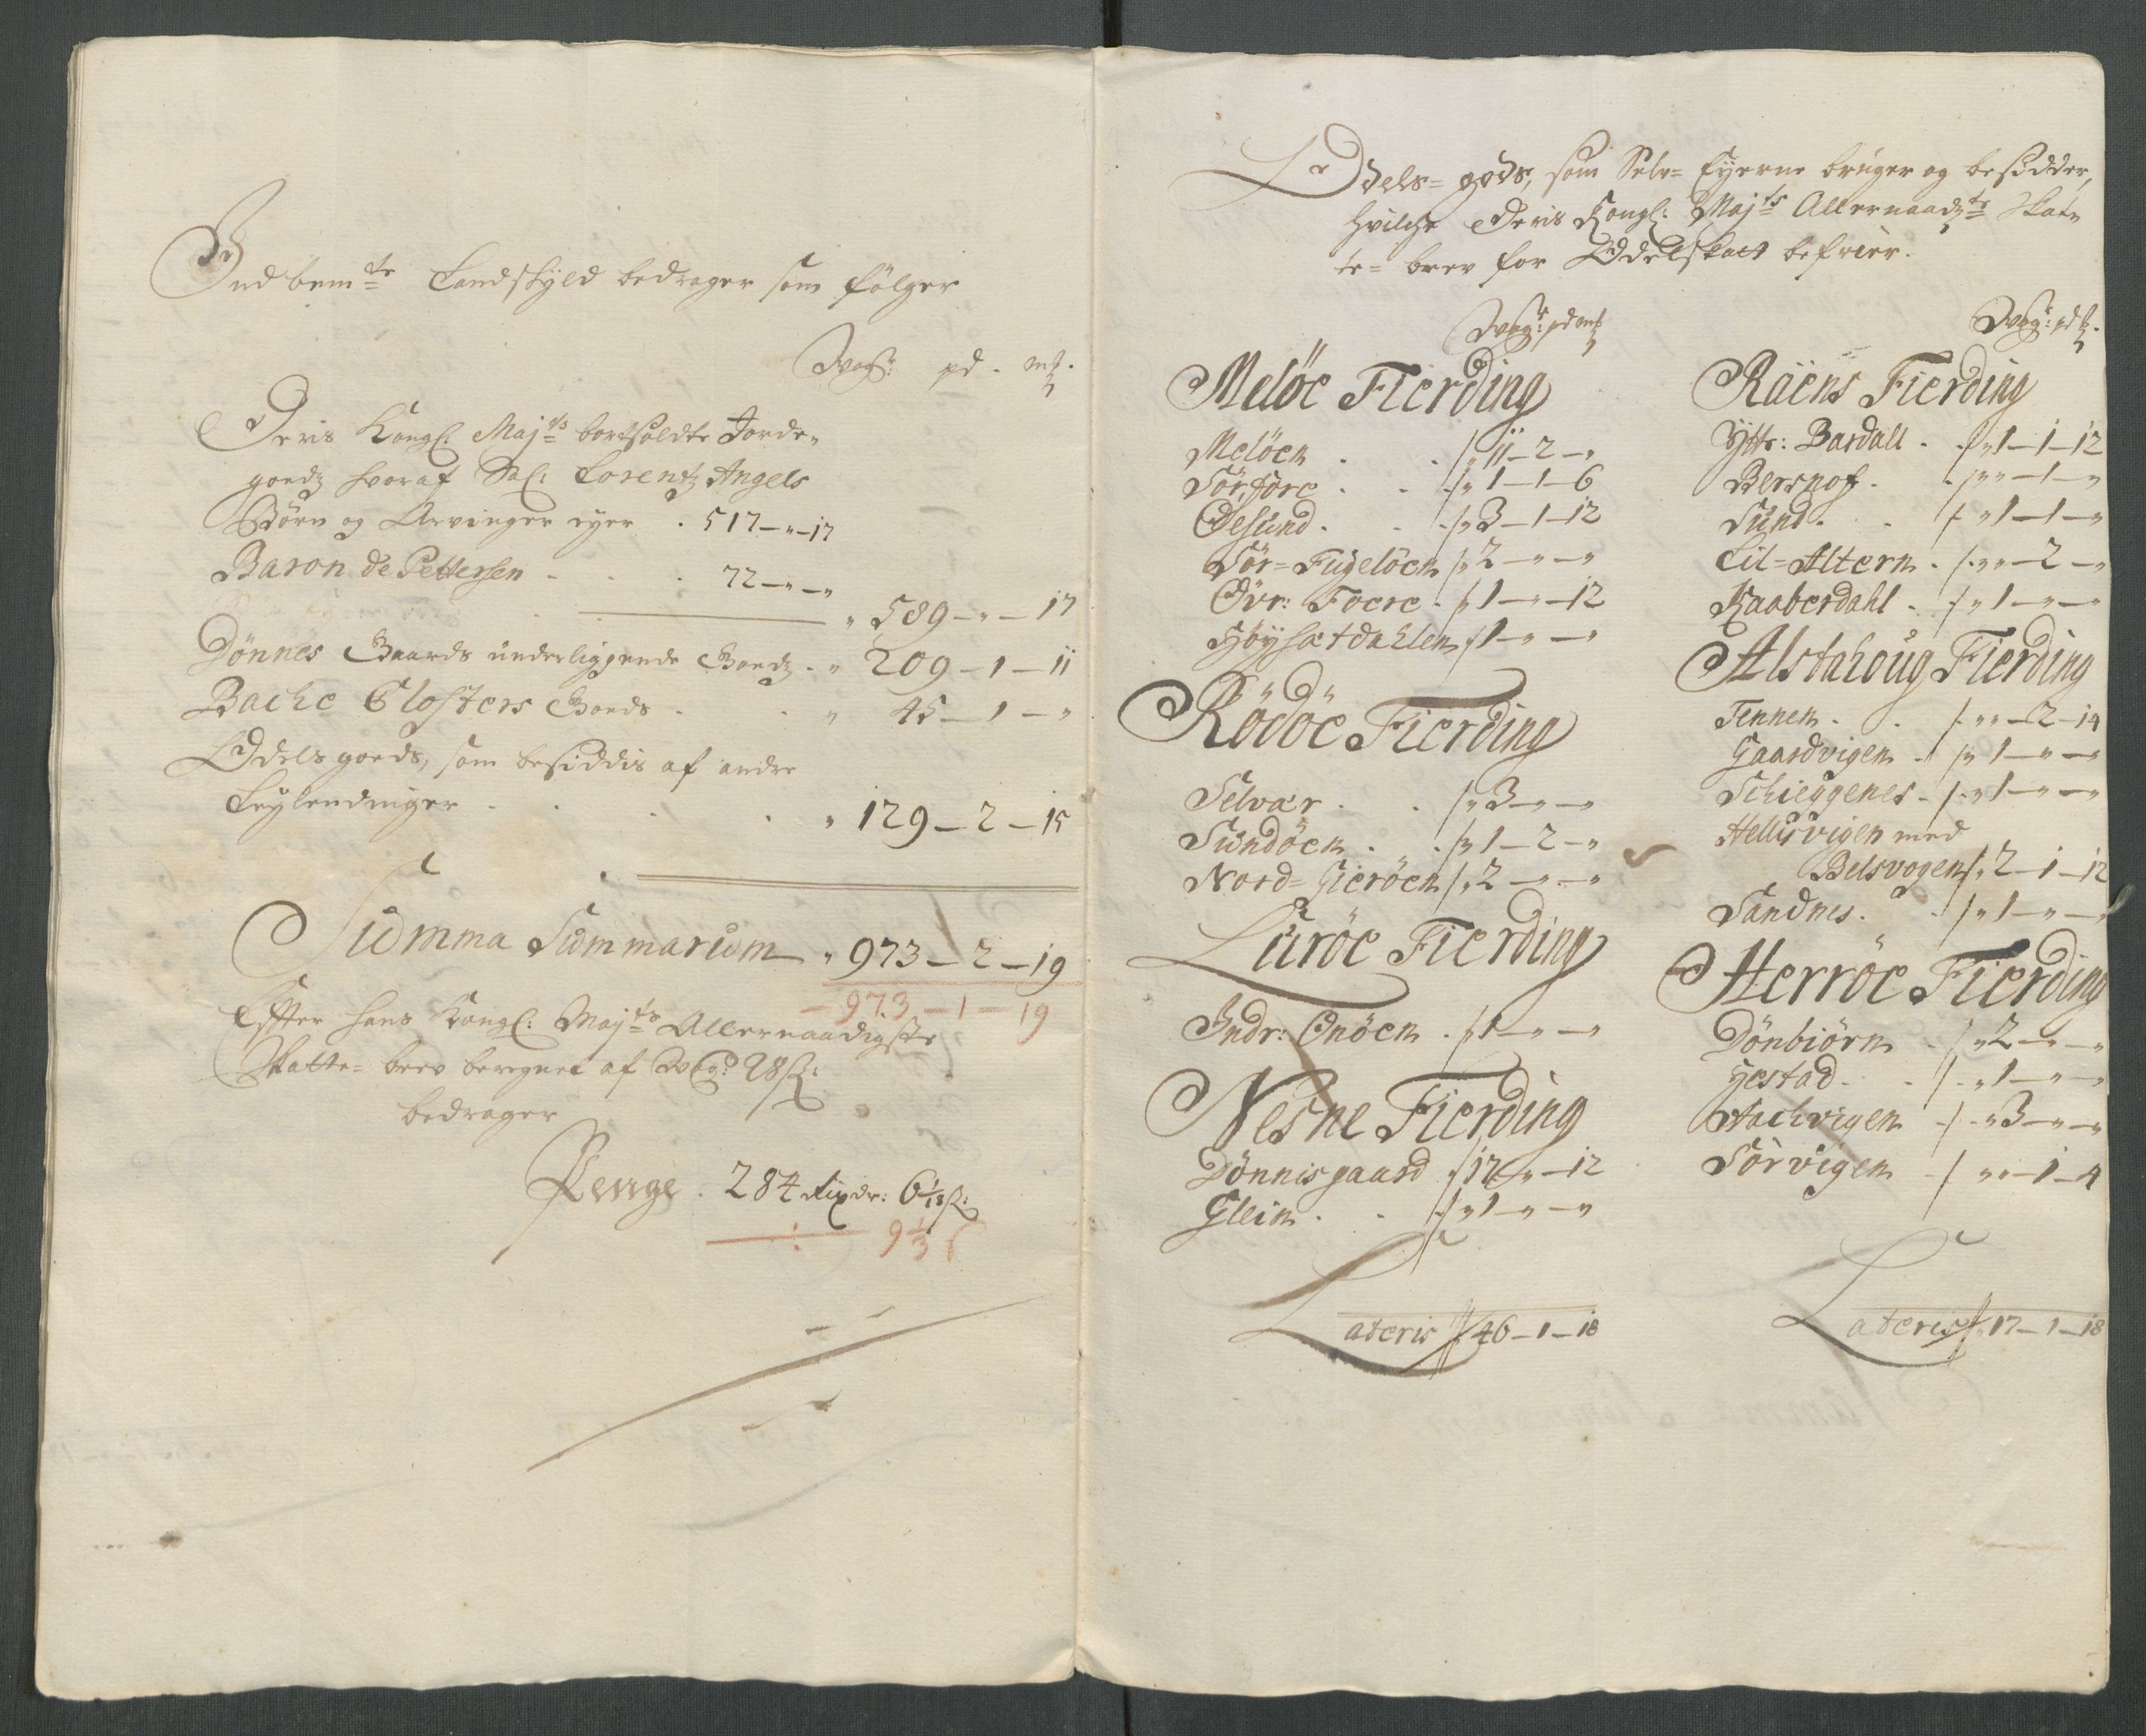 Indbemte Landskyld bedrager som følger
Wogr: pd. mk.
Deris Kongl: Majts bortsoldte Jorde-
goedz hvoraf Sal: Lorentz Angels
Børn og Arvinger eyer . 517-"-17
Baron de Pettersen . . . 72-"-"
" 589-"-17
Dönnes Gaards underliggende Goedz . " 209-1-11
Bache Closters Goeds . . " 45-1-"
Odelsgoeds, som besiddis af andre
Leylendinger . . . . " 129-2-15
Summa Summarum " 973-2-19
-973-1-19
Effter hans Kongl: Majts Allernaadigste
Skatte-brev beregnet af Wog: 28 s:
bedrager
Penge . 284 Rixdr: 6 1/18 s:
9 1/3 s
Odels-gods, som Selv-Eyerne bruger og besidder,
hvilche Deris Kongl: Majts Allernaadigste Skat-
te-brev for Odelskatt befrier.
Wogr: pd mk
Melöe Fierding
Melöen . . " 11-2-"
Sör,före . . " 1-1-6
Öesund . . " 3-1-12
Sör=Fugelöen " 2-"-"
Övr: Foere . " 1-"-12
Höysætdahlen " 1-"-"
Rödöe Fierding
Selvær . . " 3-"-"
Sundöen . . " 1-2-"
Nord=Gieröen " 2-"-"
Luröe Fierding
Indr: Onöen . " 1-"-"
Nesne Fierding
Dönnisgaard " 17-"-12
Glein . . " 1-"-"
Lateris 46-1-18
Wogr: pd mk.
Raens Fierding
Ytts: Bardall . " 1-1-12
Bersnof . " "-1-"
Sund . . " 1-1-"
Lil=Altern . " "-2-"
Raaberdahl . " 1-"-"
Alstahoug Fierding
Tennen . . " "-2-14
Gaardvigen . " 1-"-"
Schieggenes . " 1-"-"
Hellisvigen med
Belsvogen " 2-1-12
Sandnes . . " 1-"-"
Herröe Fierding
Dönbiörn . " 2-"-"
Gestad . . " 1-"-"
Stachvigen . " 3-"-"
Sörvigen . " "-1-4
Lateris " 17-1-18